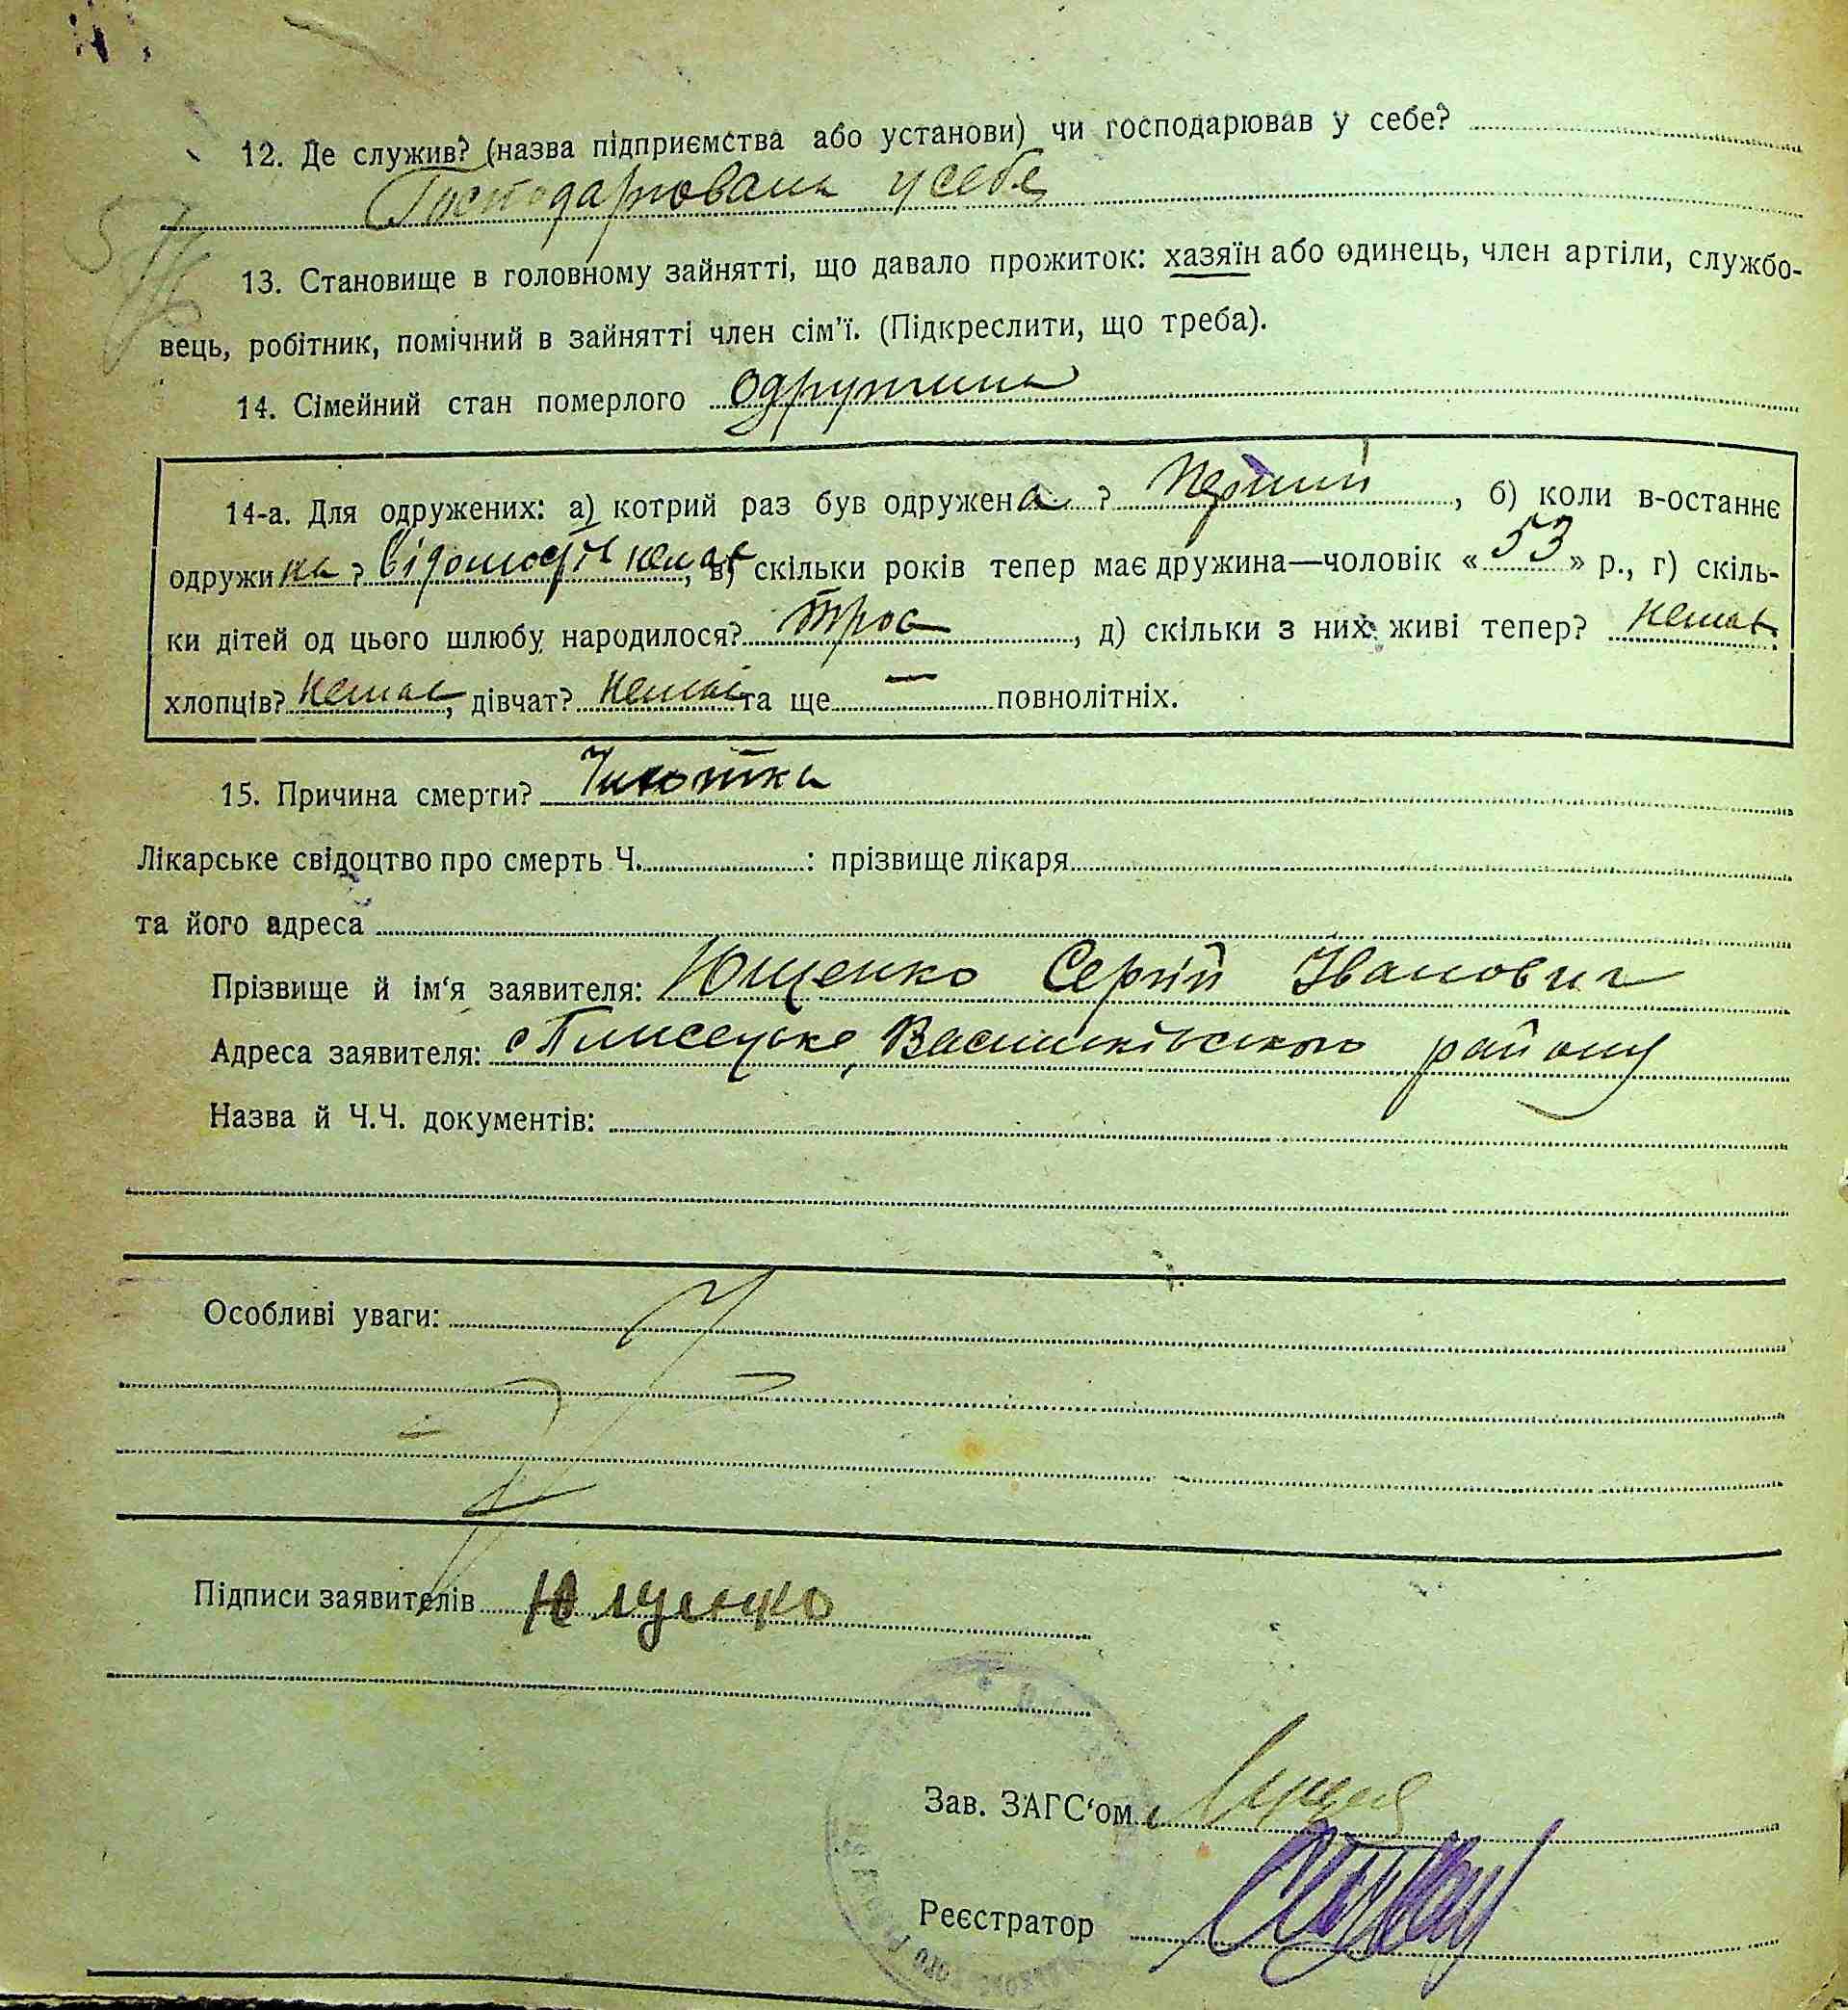 12. Де служив? (назва підприємства або установи) чи господарював у себе?
Господарювала у себе
13. Становище в головному зайнятті, що давало прожиток: хазяїн або одинець, член артіли, службо-
вець, робітник, помічний в зайнятті член сім'ї. (Підкреслити, що треба).
14. Сімейний стан померлого одружина
14-а. Для одружених: а) котрий раз був одружена? Перший, б) коли в-останнє
одружина? Відомостів немає, в) скільки років тепер має дружина—чоловік «53» р., г) скіль-
ки дітей од цього шлюбу народилося? троє, д) скільки з них живі тепер? немає
хлопців? немає, дівчат? немає та ще — повнолітніх.
15. Причина смерти? Чихотка
Лікарське свідоцтво про смерть Ч. : прізвище лікаря
та його адреса
Прізвище й ім'я заявителя: Ющенко Сергій Іванович
Адреса заявителя: с Плисецьке, Васильківського району
Назва й Ч.Ч. документів:
Особливі уваги:
Підписи заявителів Ющенко
Зав. ЗАГС'ом
Реєстратор